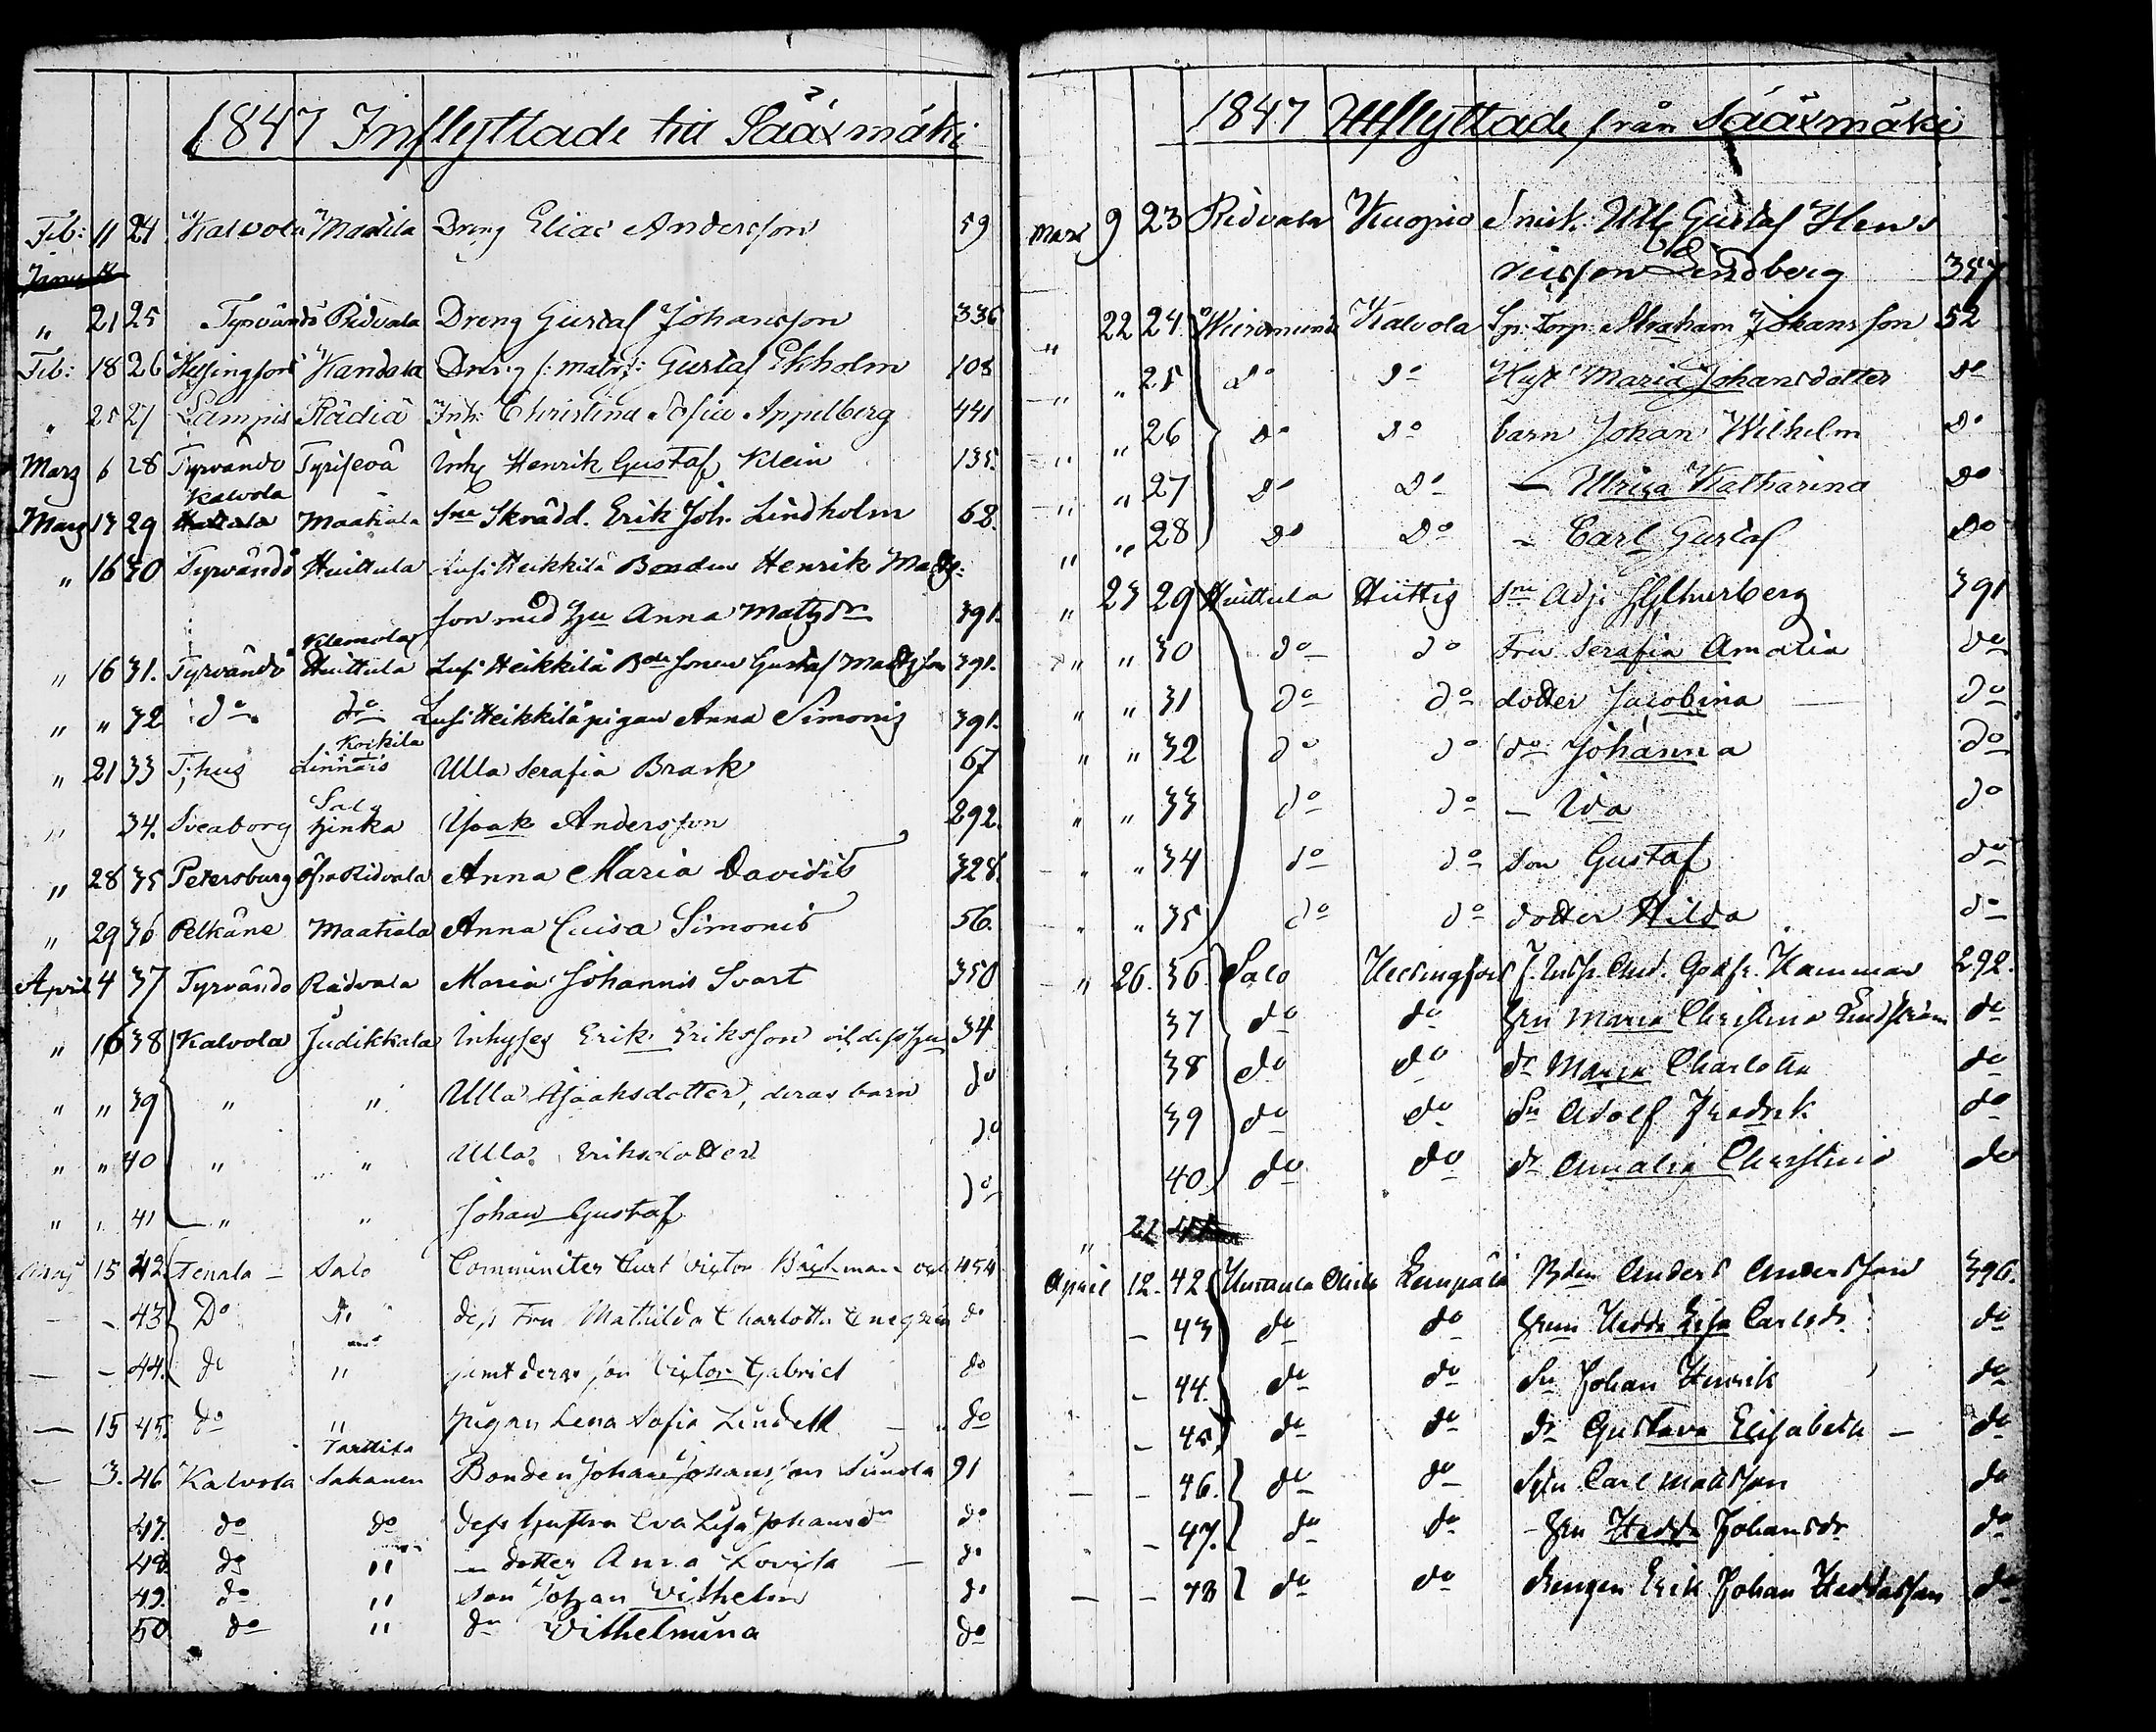 1847 Inflyttade till Sääxmäki
Feb: 11 24 Kalvola Maatila Dreng Elias Andersson 59
" 21 25 Tyrvändö Ridvala Dreng Gustaf Johansson 336
Feb: 18 26 Helsingfors Kandola Dreng Gustaf Ekholm 108
" 25 27 Lampis Rädiä Inh: Christina Sofia Appelberg 441
Marz 6 28 Tyrvändö Henrik Gustaf Klein 135.
Kalvola
Marz 13 29 Maatiala Skrädd. Erik Joh. Lindholm 68.
" 16 30 Tyrvändö Huittula Heikkilä Bonden Henrik Matts:
son med Anna Matzdr 391.
Klemola
" 16 31. Tyrvändö Huittula Heikkilä Bde sonen Gustaf Mattsson 391.
" " 32 do do Heikkilä pigan Anna Simonis 391.
Koikila
" 21 33 T:hus Linnais Ulla Serafia Brask 67
Salo
" 34. Sveaborg Isaak Andersson 292.
" 28 35 Petersburg Öfra Ridvala Anna Maria Davidis 328.
" 29 36 Pelkäne Maatiala Anna Luisa Simonis 56.
April 4 37 Tyrvändö Ridvala Maria Johannis Svart 350
" 16 38 Kalvola Judikkala Inhyses Erik Eriksson 34
" " 39 " " Ulla Isaaksdotter, deras barn do
" " 40 " " Ulla Eriksdotter do
" " 41 " " Johan Gustaf do
Maj 15 42 Tenala - Salo Comminister Curt Victor 454
- - 43 Do Do dess Fru Mathilda Charlotta do
- - 44. do " jemt deras son Victor Gabriel do
- 15 45. do " Pigan Lena Sofia Lindell - " do
- 3. 46 Kalvola Sakanen Bonden Johan Johansson 91
47. do do dess hustru Eva Lisa Johansdr do
48. do " - dotter Anna Lovisa - do
49. do " son Johan Wilhelm do
50 do " dr Wilhelmina do
1847 Utflyttade från Sääxmäki
Mars 9 23 Ridvala Kuopio Gustaf Hen
ricsson Lindberg 357
" 22 24 Kalvola Sp: Torp. Abraham Johansson 52
" " 25 do do Hust Maria Johansdotter do
" " 26 do do barn Johan Wilhelm do
" " 27 do do - Ulrica Katharina do
" " 28 do do - Carl Gustaf do
" 23 29 Huittula Hvittis Adj. 391
" " 30 do do Fru Serafia Amalia do
" " 31 do do dotter Jacobina do
" " 32 do do do Johanna do
" " 33 do do - Ida do
" " 34 do do Son Gustaf do
" " 35 do do dotter Hilda do
" 26. 36. Salo Helsingfors 292.
37 do do Maria Christina do
38 do do dr Maria Charlotta do
39 do do Sn Adolf Fredrik do
40. do do dr Amalia Christina do
" 22
April 12. 42. Lempälä Bden Anders Andersson 396.
- 43 do do Hedda Lisa Carlsdr. do
- 44. do do Sn Johan Henrik do
- 45 do do dr Gustava Elisabeth - do
- - 46. do do Carl Mattsson do
- 47. do do - Hedda Johansdr do
- - 48 do do drengen Erik Johan do